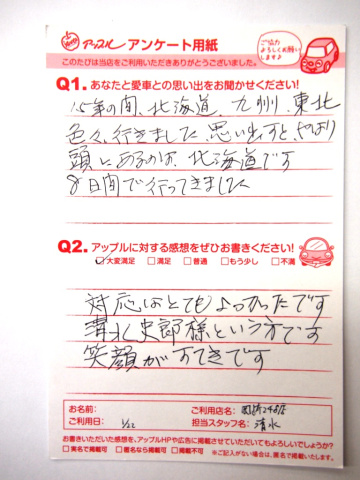 アップル アンケート用紙
ご協力
よろしくお願い
します♪
このたびは当店をご利用いただきありがとうございました。
Q1. あなたと愛車との思い出をお聞かせください!
15年の間、北海道、九州、東北
色々、行きました、思い出すと、やはり
頭にあるのは、北海道です
8日間で行ってきました
Q2. アップルに対する感想をぜひお書きください!
大変満足 満足 普通 もう少し 不満
対応はとてもよかったです
溝北史郎様という方です
笑顔がすてきです
お名前:
ご利用店名:
ご利用日: 1/22
担当スタッフ名: 清水
お書きいただいた感想を、アップルHPや広告に掲載させていただいてもよろしいでしょうか?
実名で掲載可 匿名なら掲載可 掲載不可 ※ご記入がない場合は、匿名で掲載いたします。